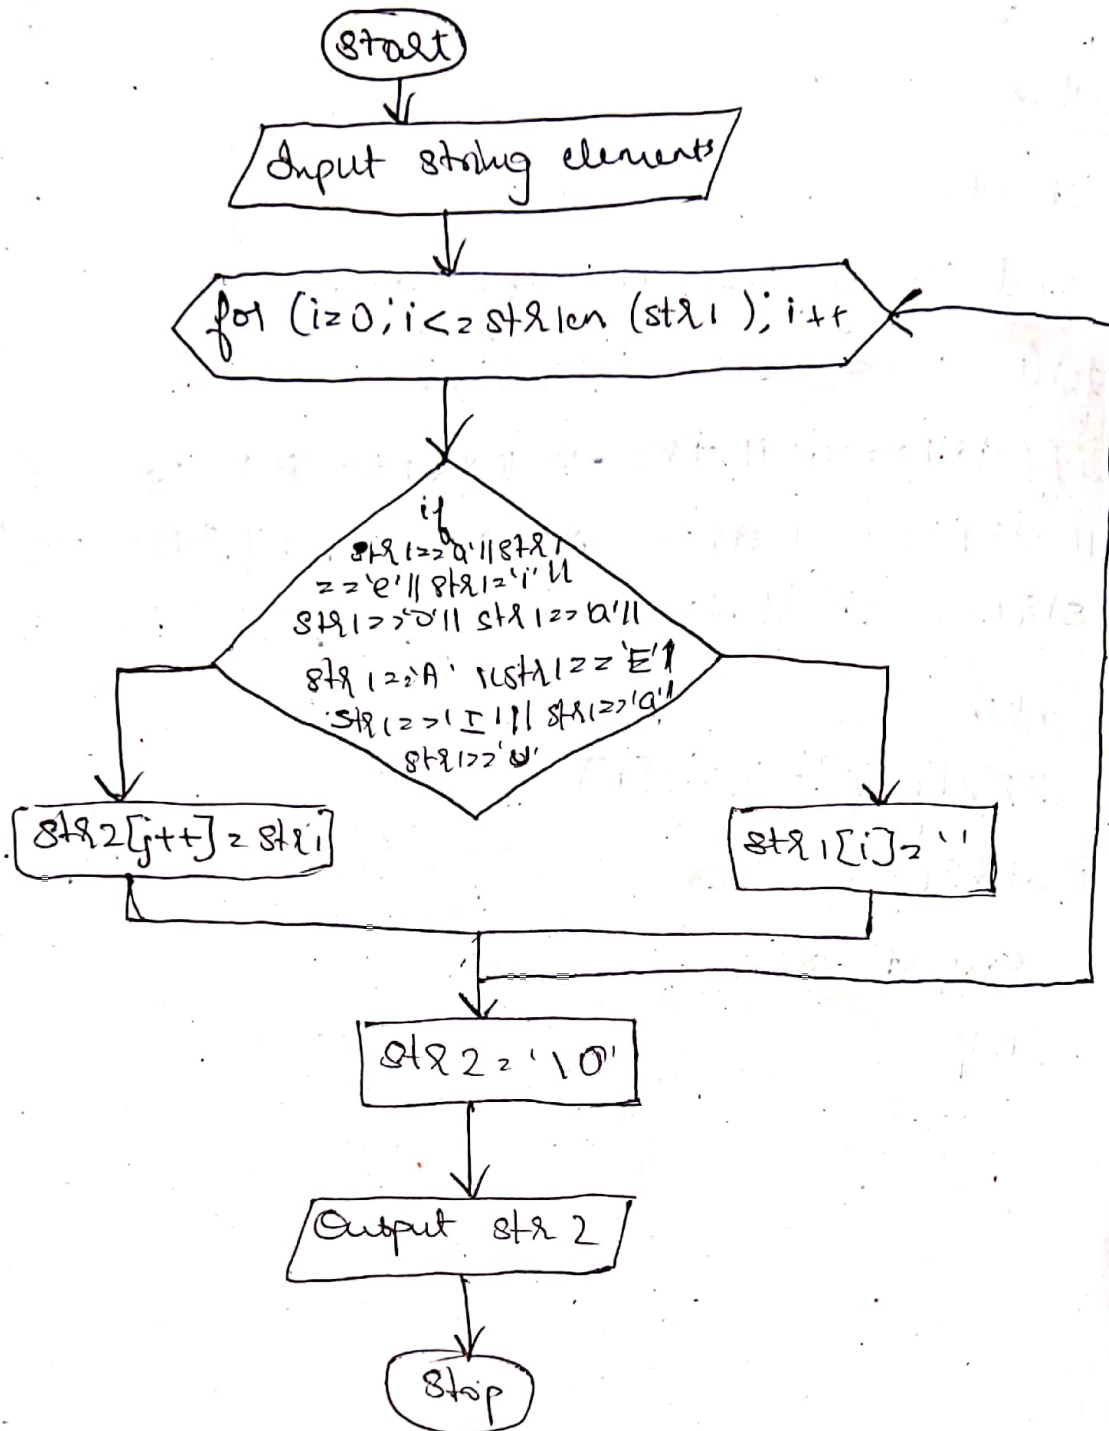 Start
Input string elements
for (i=0; i<=strlen (str1 ); i++
if
str1=='a'||str1
=='e'||str1='i'||
str1=='o'||str1=='a'||
str1=='A' ||str1=='E'|
str1=='I'||str1=='a'|
str1=='u'
str2[j++]=stri
str1[i]=''
str2='\0'
Output str2
Stop